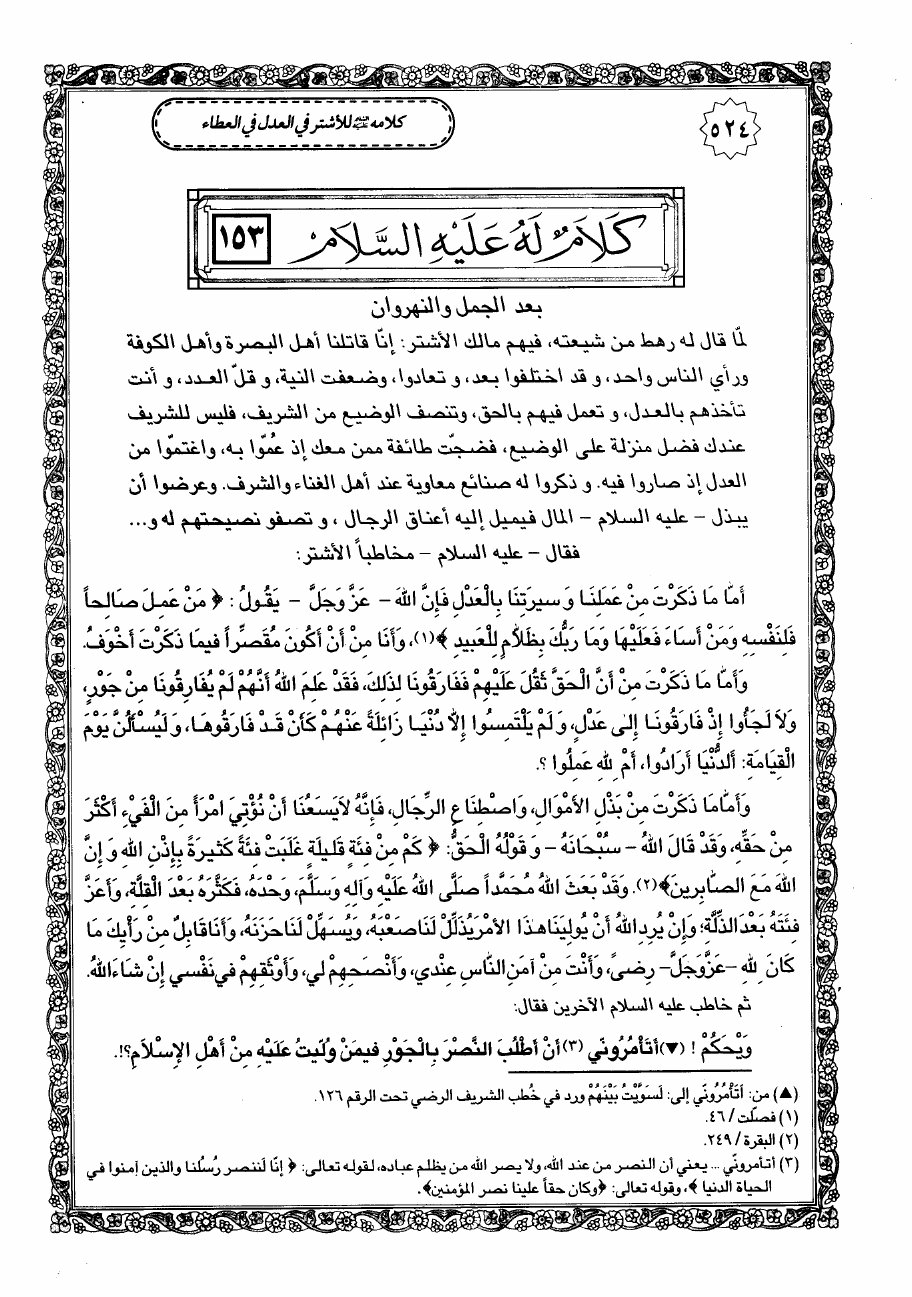 ٥٢٤
كلامه ﷺ للأشتر في العدل في العطاء
كَلَامٌ لَهُ عَلَيْهِ السَّلَامُ
١٥٣
بعد الجمل والنهروان
لمّا قال له رهط من شيعته، فيهم مالك الأشتر: إنّا قاتلنا أهل البصرة وأهل الكوفة
ورأي الناس واحد، و قد اختلفوا بعد، و تعادوا، وضعفت النية، و قلّ العدد، و أنت
تأخذهم بالعدل، و تعمل فيهم بالحق، وتنصف الوضيع من الشريف، فليس للشريف
عندك فضل منزلة على الوضيع، فضجّت طائفة ممن معك إذ عُمّوا به، واغتمّوا من
العدل إذ صاروا فيه. و ذكروا له صنائع معاوية عند أهل الغناء والشرف. وعرضوا أن
يبذل - عليه السلام - المال فيميل إليه أعناق الرجال ، و تصفو نصيحتهم له و...
فقال - عليه السلام - مخاطباً الأشتر:
أَمَّا مَا ذَكَرْتَ مِنْ عَمَلِنَا وَ سيرَتِنَا بِالْعَدْلِ فَإِنَّ اللهَ - عَزَّ وَجَلَّ - يَقُولُ : ﴿ مَنْ عَمِلَ صَالِحاً
فَلِنَفْسِهِ وَمَنْ أَسَاءَ فَعَلَيْهَا وَمَا رَبُّكَ بِظَلاَّمٍ لِلْعَبيدِ ﴾(١)، وَأَنَا مِنْ أَنْ أَكُونَ مُقَصِّراً فيمَا ذَكَرْتَ أَخْوَفُ.
وَأَمَّا مَا ذَكَرْتَ مِنْ أَنَّ الْحَقَّ ثَقُلَ عَلَيْهِمْ فَفَارَقُونَا لِذَلِكَ، فَقَدْ عَلِمَ اللهُ أَنَّهُمْ لَمْ يُفَارِقُونَا مِنْ جَوْرٍ،
وَلاَ لَجَأُوا إِذْ فَارَقُونَا إِلى عَدْلٍ، وَ لَمْ يَلْتَمِسُوا إِلاَّ دُنْيَا زَائِلَةً عَنْهُمْ كَأَنْ قَدْ فَارَقُوهَا، وَ لَيُسْأَلُنَّ يَوْمَ
الْقِيَامَةِ: أَلدُّنْيَا أَرَادُوا، أَمْ لِلهِ عَمِلُوا ؟.
وَأَمَّامَا ذَكَرْتَ مِنْ بَذْلِ الأَمْوَالِ، وَاصْطِنَاعِ الرِّجَالِ، فَإِنَّهُ لاَيَسَعُنَا أَنْ نُؤْتِيَ امْرَأً مِنَ الْفَيْءِ أَكْثَرَ
مِنْ حَقِّهِ، وَقَدْ قَالَ اللهُ - سُبْحَانَهُ - وَ قَوْلُهُ الْحَقُّ: ﴿ كَمْ مِنْ فِئَةٍ قَليلَةٍ غَلَبَتْ فِئَةً كَثيرَةً بِإِذْنِ اللهِ وَ إِنَّ
اللهَ مَعَ الصَّابِرينَ﴾(٢). وَقَدْ بَعَثَ اللهُ مُحَمَّداً صَلَّى اللهُ عَلَيْهِ وَآلِهِ وَسَلَّمَ، وَحْدَهُ، فَكَثَّرَهُ بَعْدَ الْقِلَّةِ، وَأَعَزَّ
فِئَتَهُ بَعْدَ الذِّلَّةِ؛ وَإِنْ يُرِدِ اللهُ أَنْ يُوَلِّيَنَا هذَا الأَمْرَ يُذَلِّلْ لَنَا صَعْبَهُ، وَيُسَهِّلْ لَنَا حَزَنَهُ، وَأَنَا قَابِلٌ مِنْ رَأْيِكَ مَا
كَانَ لِلهِ -عَزَّوَجَلَّ- رِضىً، وَأَنْتَ مِنْ آمَنِ النَّاسِ عِنْدي، وَأَنْصَحِهِمْ لي، وَأَوْثَقِهِمْ في نَفْسي إِنْ شَاءَ اللهُ.
ثم خاطب عليه السلام الآخرين فقال:
وَيْحَكُمْ ! (▼) أَتَأْمُرُونّي (٣) أَنْ أَطْلُبَ النَّصْرَ بِالْجَوْرِ فيمَنْ وُلّيتُ عَلَيْهِ مِنْ أَهْلِ الإِسْلاَمِ؟!.
(▲) من: أَتَأْمُرُونّي إلى: لَسَوَّيْتُ بَيْنَهُمْ ورد في خُطب الشريف الرضي تحت الرقم ١٢٦.
(١) فصلت / ٤٦.
(٢) البقرة / ٢٤٩.
(٣) أتأمرونّي ... يعني أن النصر من عند الله، ولا يصر الله من يظلم عباده، لقوله تعالى: ﴿ إنّا لَننصر رُسُلنا والذين آمنوا في
الحياة الدنيا ﴾، وقوله تعالى: ﴿وكان حقاً علينا نصر المؤمنين﴾.